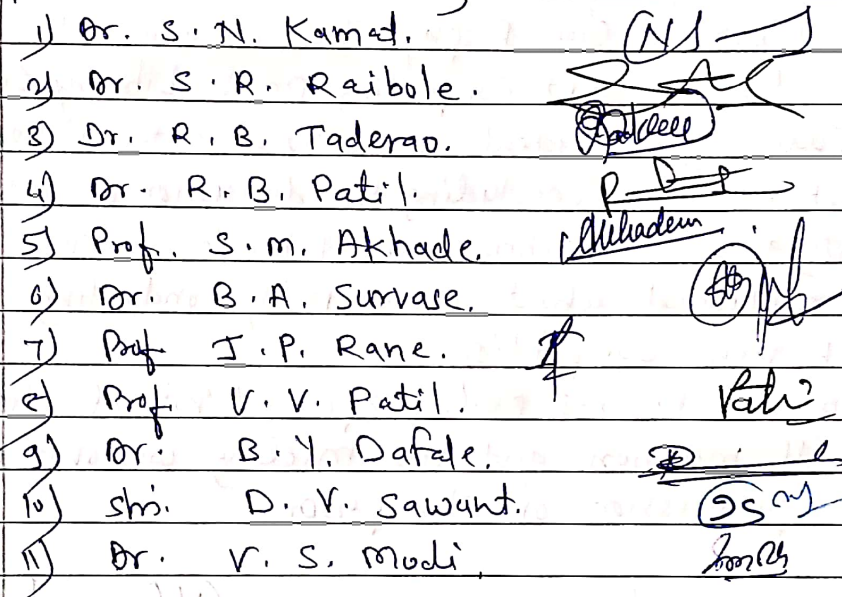 1) Dr. S. N. Kamat.
2) Dr. S. R. Raibole.
3) Dr. R. B. Taderao.
4) Dr. R. B. Patil.
5) Prof. S. M. Akhade.
6) Dr. B. A. Survase.
7) Prof J. P. Rane.
8) Prof. V. V. Patil. Patil
9) Dr. B. Y. Dafale.
10) Shri. D. V. Sawant.
11) Dr. V. S. Modi